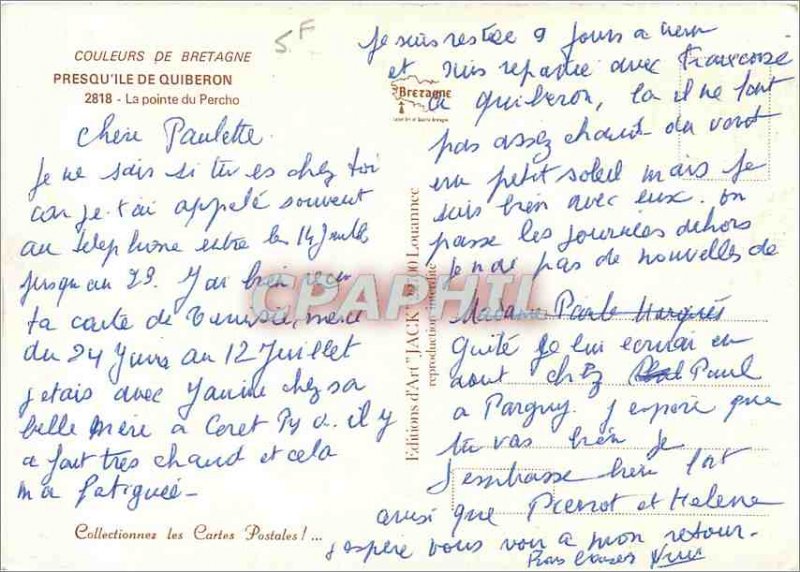 COULEURS DE BRETAGNE
PRESQU'ILE DE QUIBERON
2818 - La pointe du Percho
5F
Bretagne
chère Paulette
Je ne sais si tu es chez toi
car je t'ai appelé souvent
au telephone entre le 14 Juillet
jusqu'au 29. J'ai bien reçu
ta carte de Tunisie, merci
du 24 Juin au 12 Juillet
j'etais avec Janine chez sa
belle mère à Ceret P. O. il y
a fait très chaud et cela
m'a fatiguée -
Collectionnez les Cartes Postales ! ...
Editions d'Art "JACK" Louannec
reproduction interdite
CPAPHIL
Je suis restée 9 jours a
et suis repartie avec Françoise
a Quiberon, la il ne fait
pas assez chaud du vent
un petit soleil mais je
suis bien avec eux. on
passe les journées dehors
Je n'ai pas de nouvelles de
Madame
Guité je lui ecrirai en
aout chez Paul
a Pargny. J'espère que
tu vas bien je
t'embrasse bien fort
ainsi que Pierrot et Helene
J'espère vous voir a mon retour.